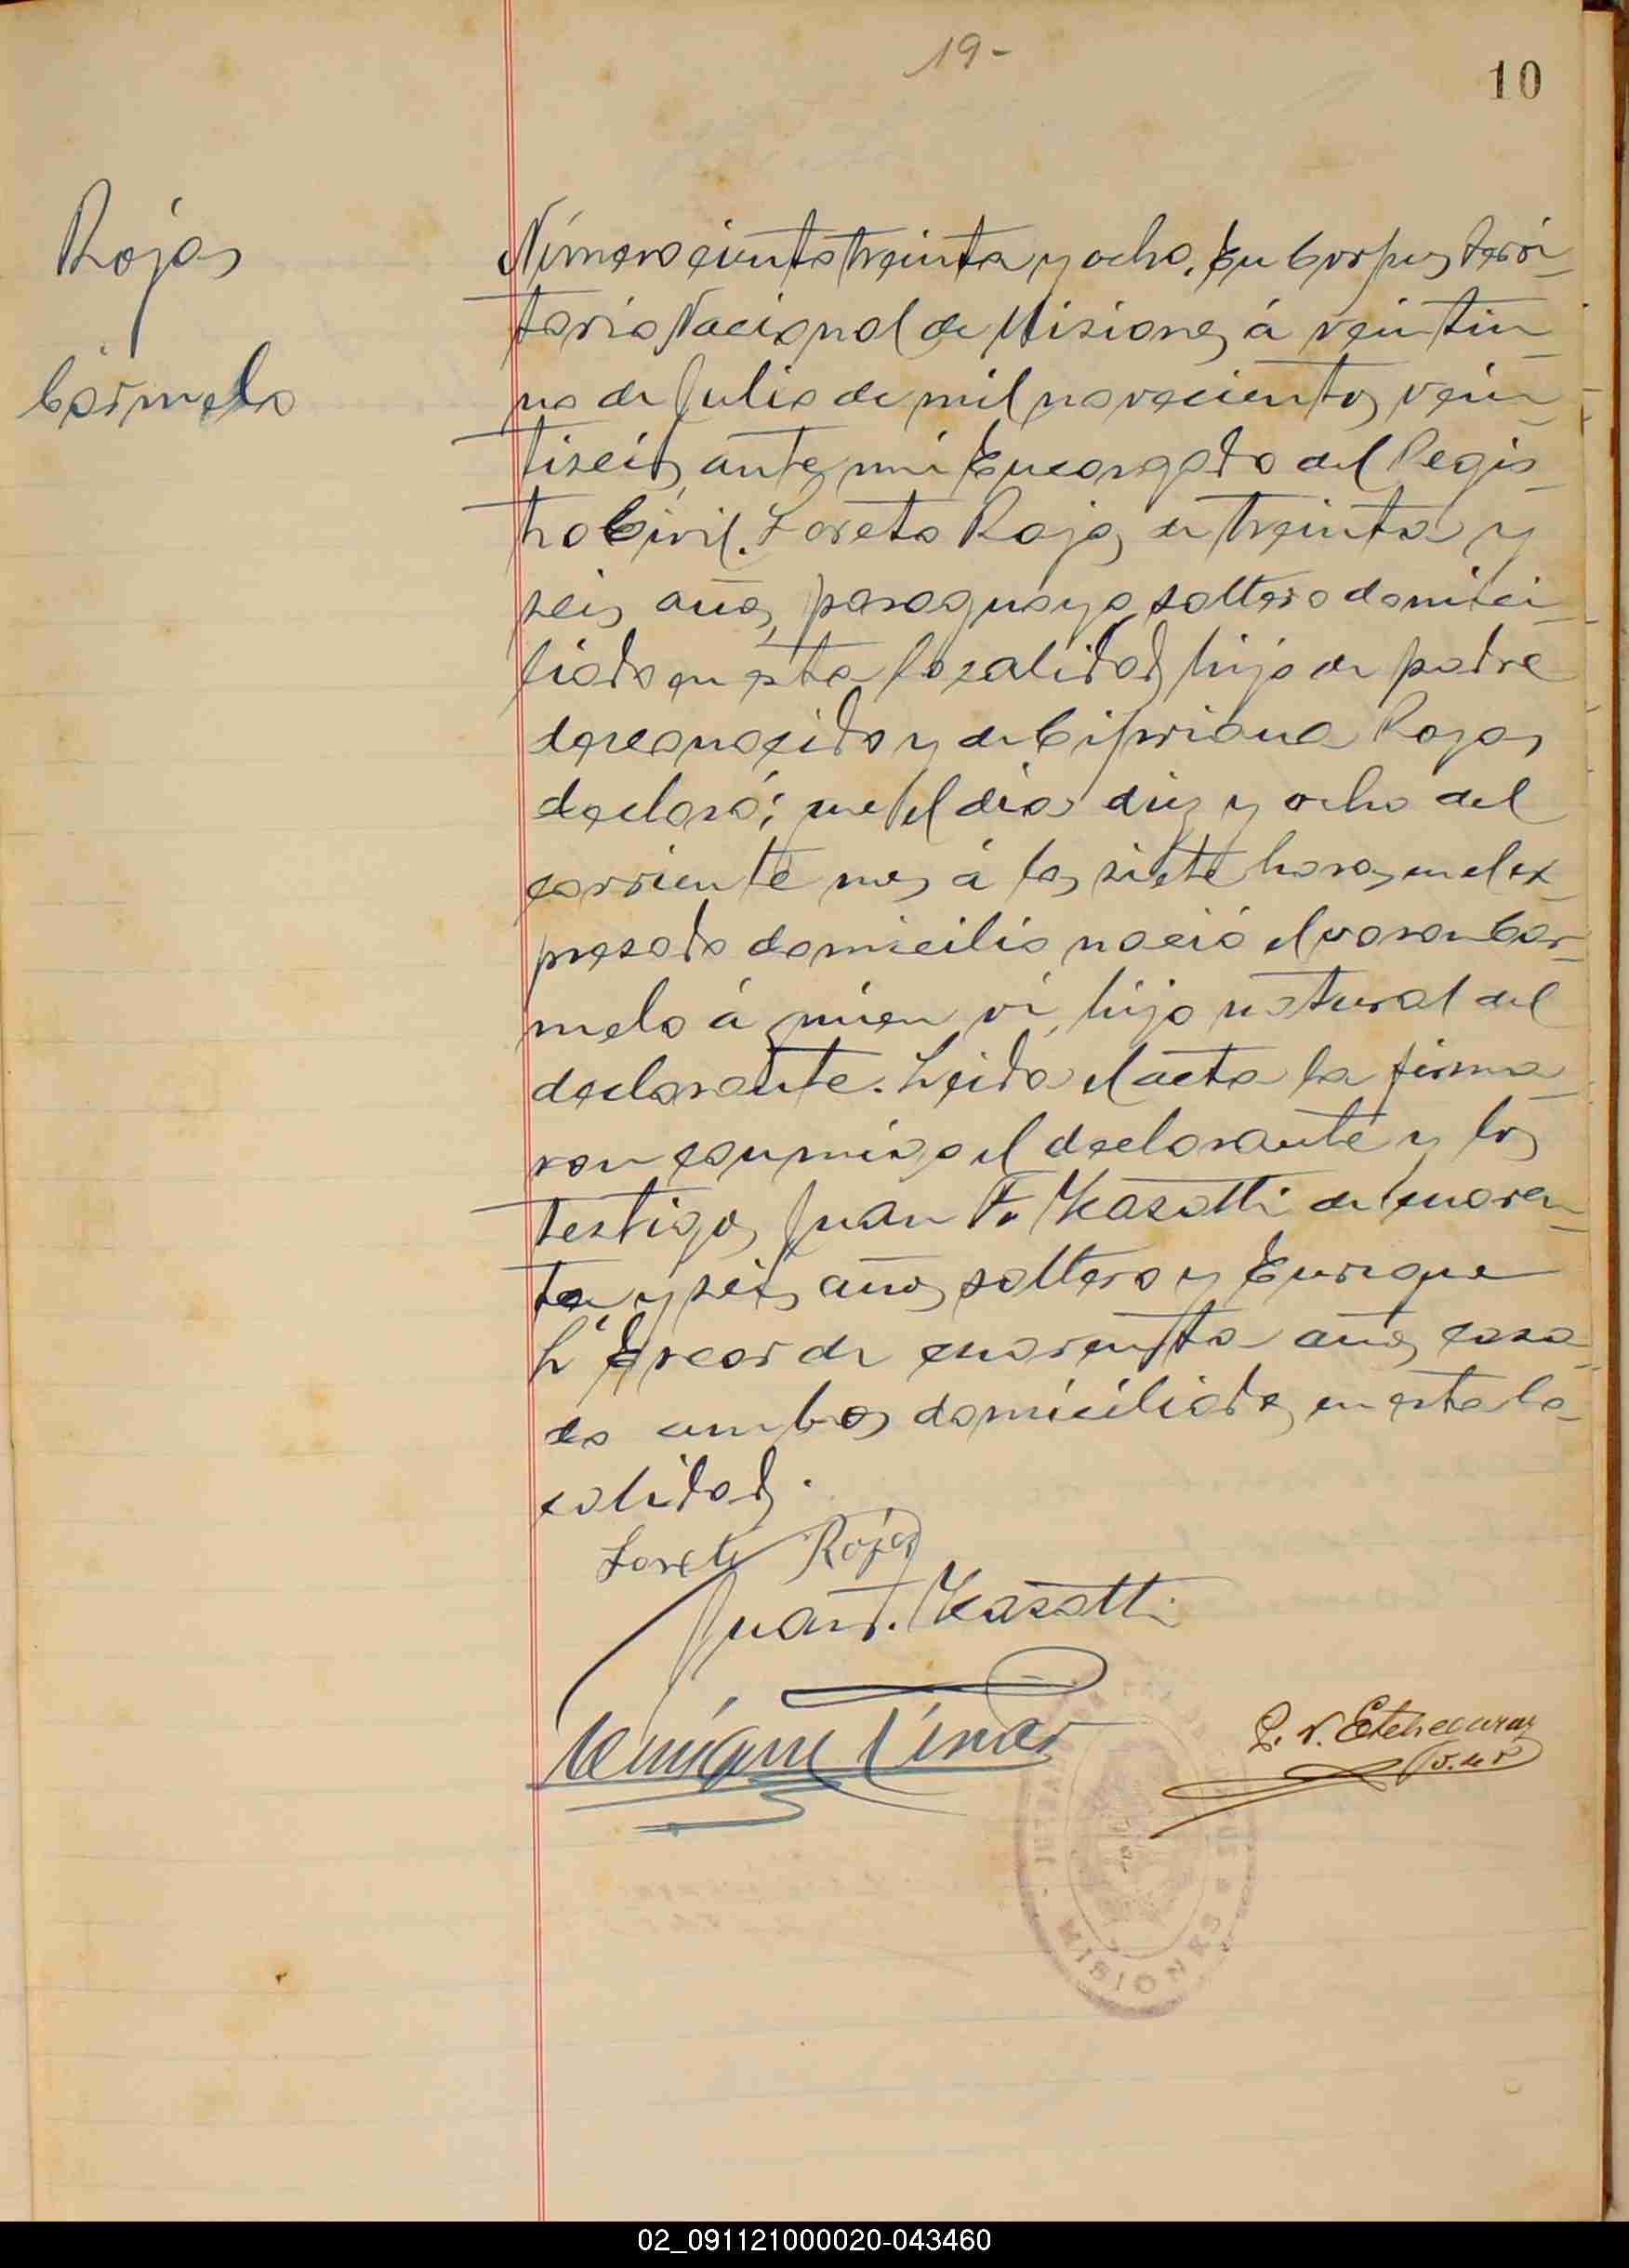 19-
10
Rojas
Carmelo
Número ciento treinta y ocho. En Corpus Terri-
torio Nacional de Misiones á veintiu-
no de Julio de mil novecientos vein-
tiseis, ante mi Encargado del Regis-
tro Civil. Loreto Rojas de treinta y
seis años, paraguayo soltero domici-
liado en esta localidad, hijo de padre
desconocido y de Cipriana Rojas,
declaró; que el dia diez y ocho del
corriente mes á las siete horas, en el ex-
presado domicilio nació el varon Car-
melo á quien ví, hijo natural del
declarante. Leida el acta la firma-
ron conmigo el declarante y los
testigos Juan F. Kasatti de cuaren-
ta y seis, años, soltero y Enrique
de cuarenta años, casa-
do ambos domiciliados, en esta lo-
calidad.
Loreto Rojas
Juan F. Kasatti
Enrique
MISIONES